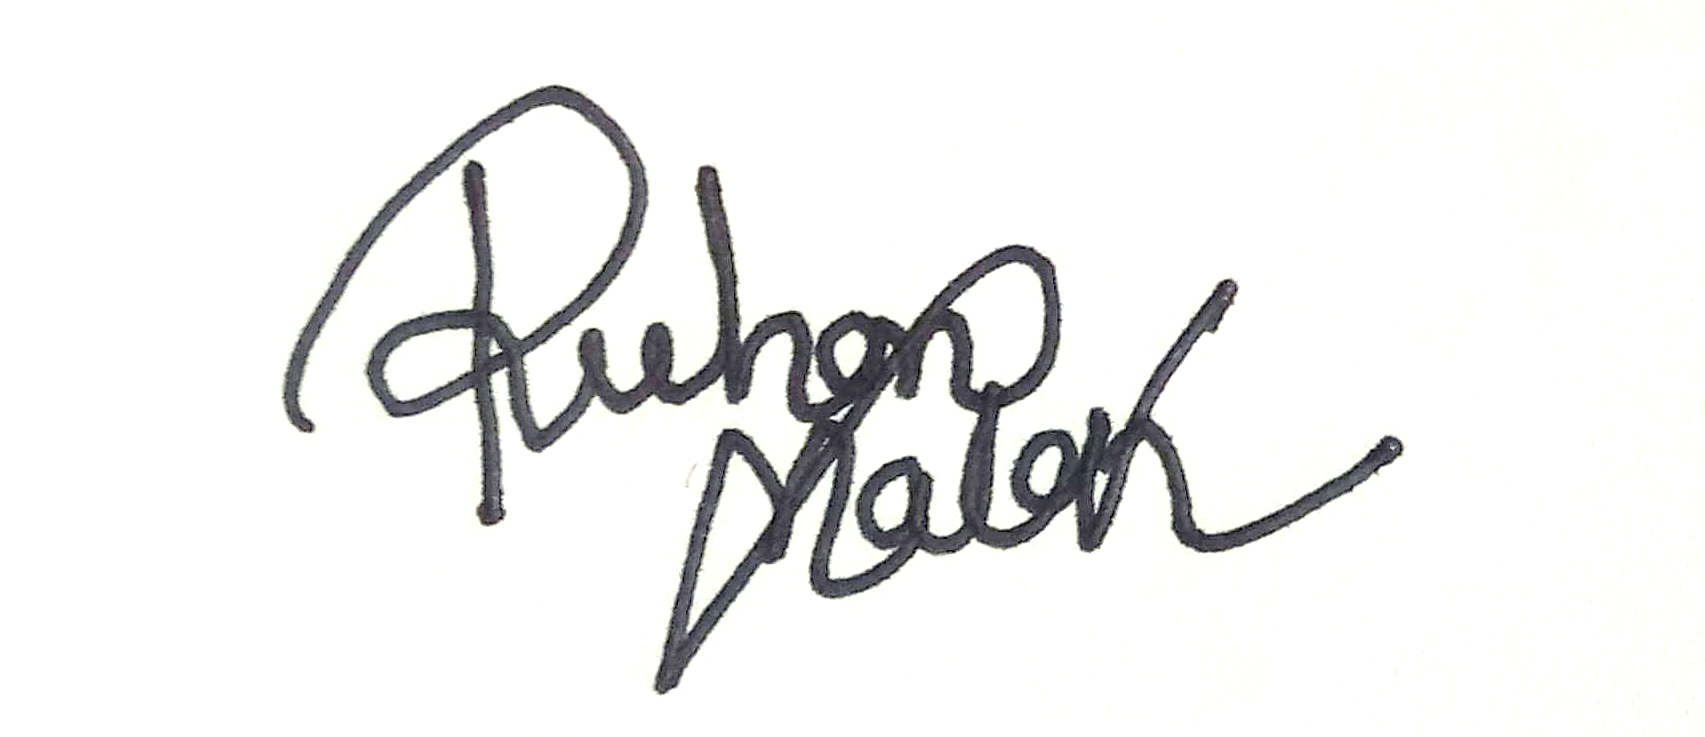 Ruhan
Malak